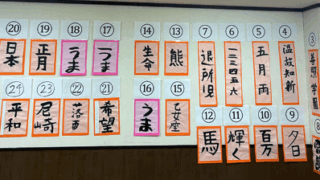 ③
④
温故知新
⑤
五月雨
⑥
一二三四五六
⑦
退所児
⑧
⑨
夕日
⑩
百万
⑪
輝く
⑫
馬
⑬
熊
⑭
生命
⑮
乙女座
⑯
うま
⑰
うま
⑱
うま
⑲
正月
⑳
日本
㉑
希望
㉒
落書
㉓
尼崎
㉔
平和